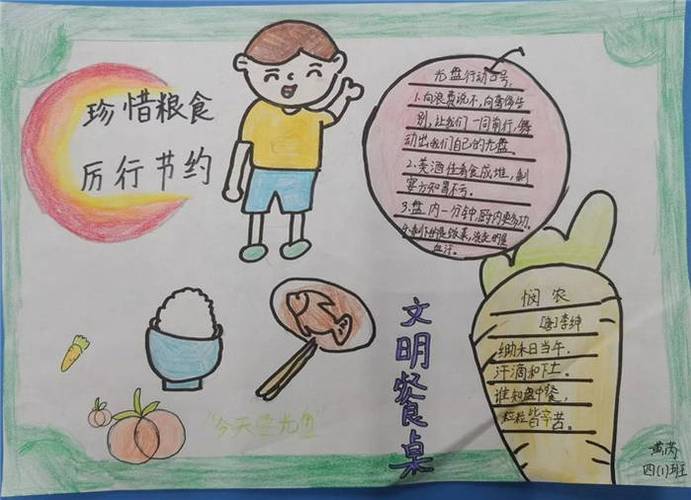 珍惜粮食
厉行节约
光盘行动口号
1.向浪费说不,向奢侈告
别,让我们一同前行,舞
动出我们自己的光盘。
2.美酒佳肴食成堆,剩
宴方知
3.盘内一分钟,厨内
悯农
[唐]李绅
锄禾日当午,
汗滴禾下土。
谁知盘中餐,
粒粒皆辛苦。
文明餐桌
今天
四(1)班